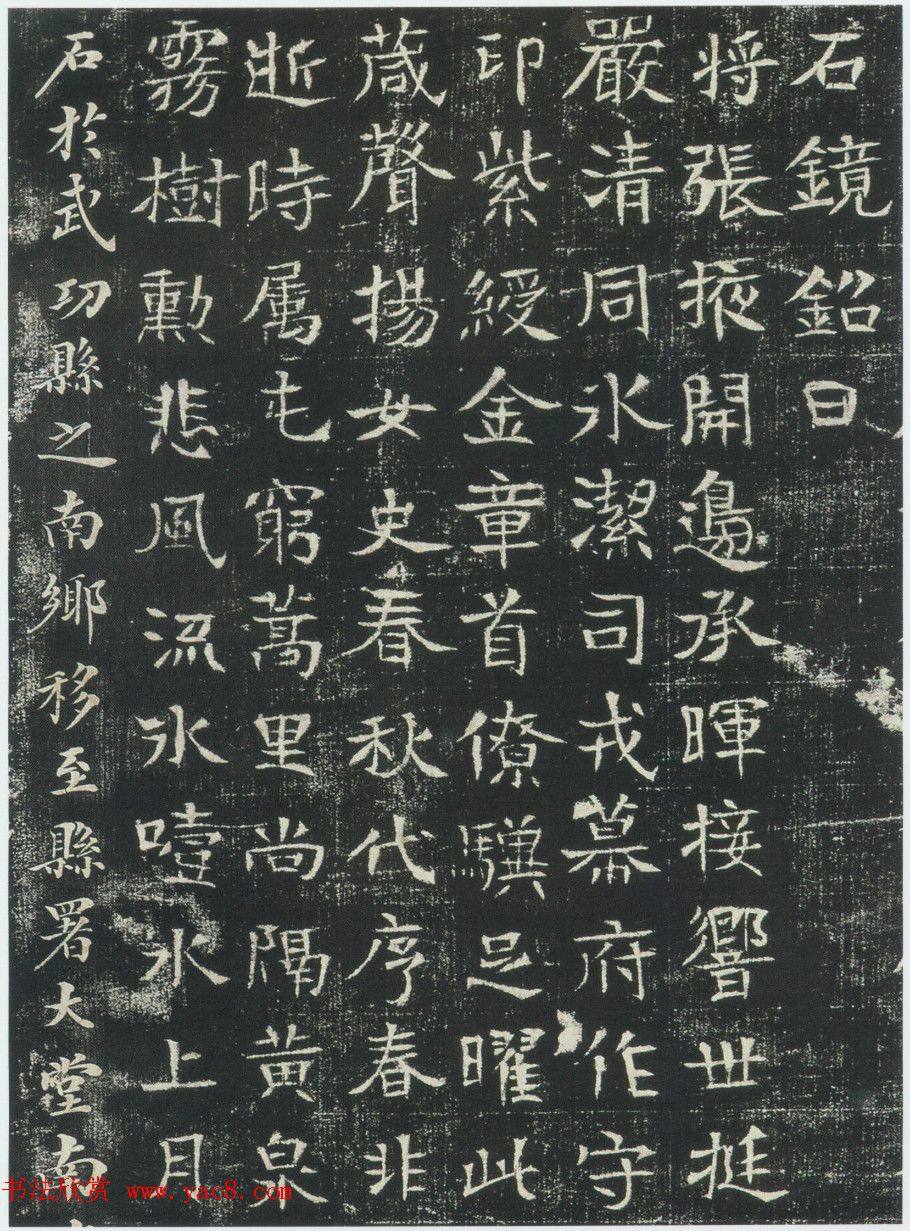 石鏡銘曰
将張掖開邊承暉接響丗挺
嚴清同水潔司戎幕府作守
印紫綬金章首僚驥足曜此
葴聲揚女史春秋代序春非
逝時属屯窮蒿里尚隔黄泉
霧樹勳悲風流水噎水上月
石於武㓛縣之南鄉移至縣署大堂南
书法欣赏 www.yac8.com